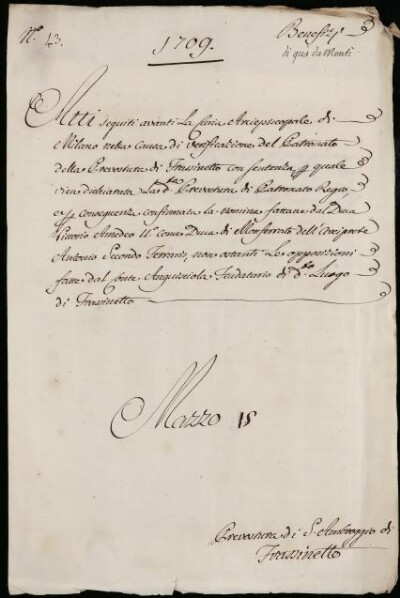 N.° 43.
1709.
Benefizi
di qua da Monti
Atti seguiti avanti La Curia Arciepiscopale di
Milano nella Causa di verificazione del Patronato
della Prevostura di Frassinetto con sentenza, p quale
vien dichiarata La d.ª Prevostura di Patronato Regio,
e p conseguenza confirmata la nomina fattane dal Duca
Vittorio Amedeo II.° come Duca di Monferrato dell'Arciprete
Antonio Secondo Ferraris, non ostanti Le opposizioni
fatte dal Conte Anguissola Feudatario di d.° Luogo
di Frassinetto
Mazzo 15
Prevostura di S. Ambroggio di
Frassinetto